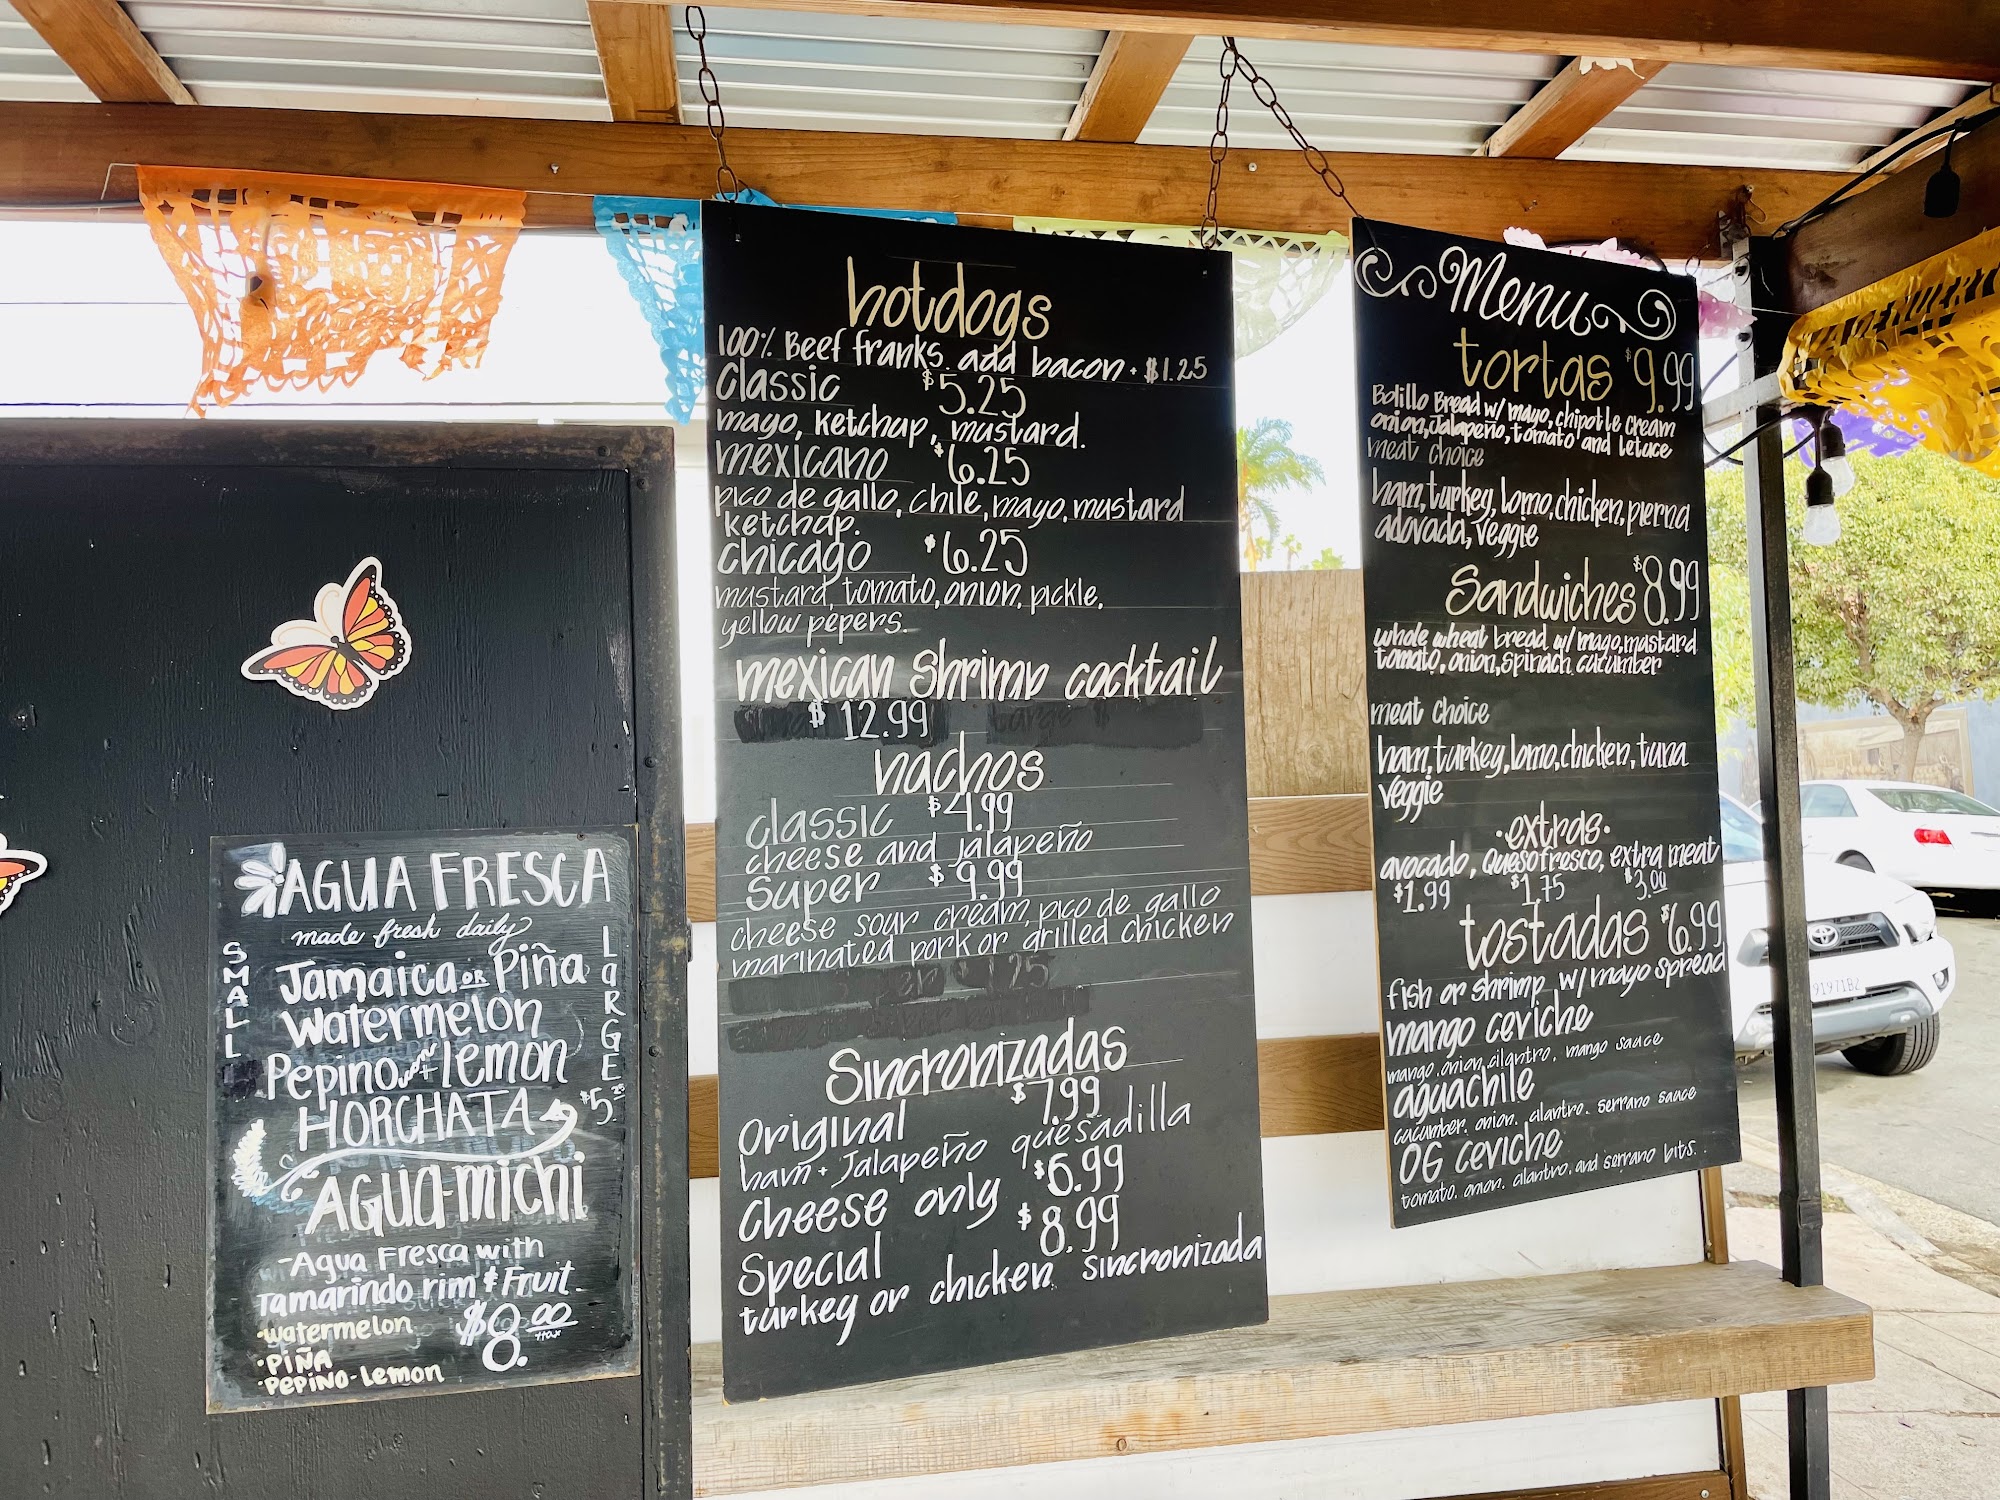 AGUA FRESCA
made fresh daily
SMALL
LARGE
Jamaica OR Piña
Watermelon
Pepino lemon
HORCHATA
$5.25
AGUA-michi
-Agua Fresca with
Tamarindo rim & Fruit.
•watermelon
$8.00
+tax
•PIÑA
•PEPINO-Lemon
hotdogs
100% Beef franks. add bacon • $1.25
Classic $5.25
mayo, ketchup, mustard.
mexicano $6.25
pico de gallo, chile, mayo, mustard
ketchup.
Chicago $6.25
mustard, tomato, onion, pickle,
yellow pepers.
mexican shrimp cocktail
$12.99
nachos
classic $4.99
cheese and jalapeño
Super $9.99
cheese sour cream, pico de gallo
marinated pork or grilled chicken
Sincronizadas
Original $7.99
ham + Jalapeño quesadilla
Cheese only $6.99
Special $8.99
turkey or chicken sincronizada
Menu
tortas $9.99
Bolillo Bread w/ mayo, chipotle cream
onion, Jalapeño, tomato and letuce
meat choice
ham, turkey, lomo, chicken, pierna
adovada, veggie
Sandwiches $8.99
whole wheat bread w/ mayo, mustard
tomato, onion, spinach, cucumber
meat choice
ham, turkey, lomo, chicken, tuna
veggie
•extras•
avocado, Quesofresco, extra meat
$1.99 $1.75 $3.00
tostadas $6.99
fish or shrimp w/ mayo spread
mango ceviche
mango, onion, cilantro, mango sauce
aguachile
cucumber, onion, cilantro, serrano sauce
OG ceviche
tomato, onion, cilantro, and serrano bits.
91971B2